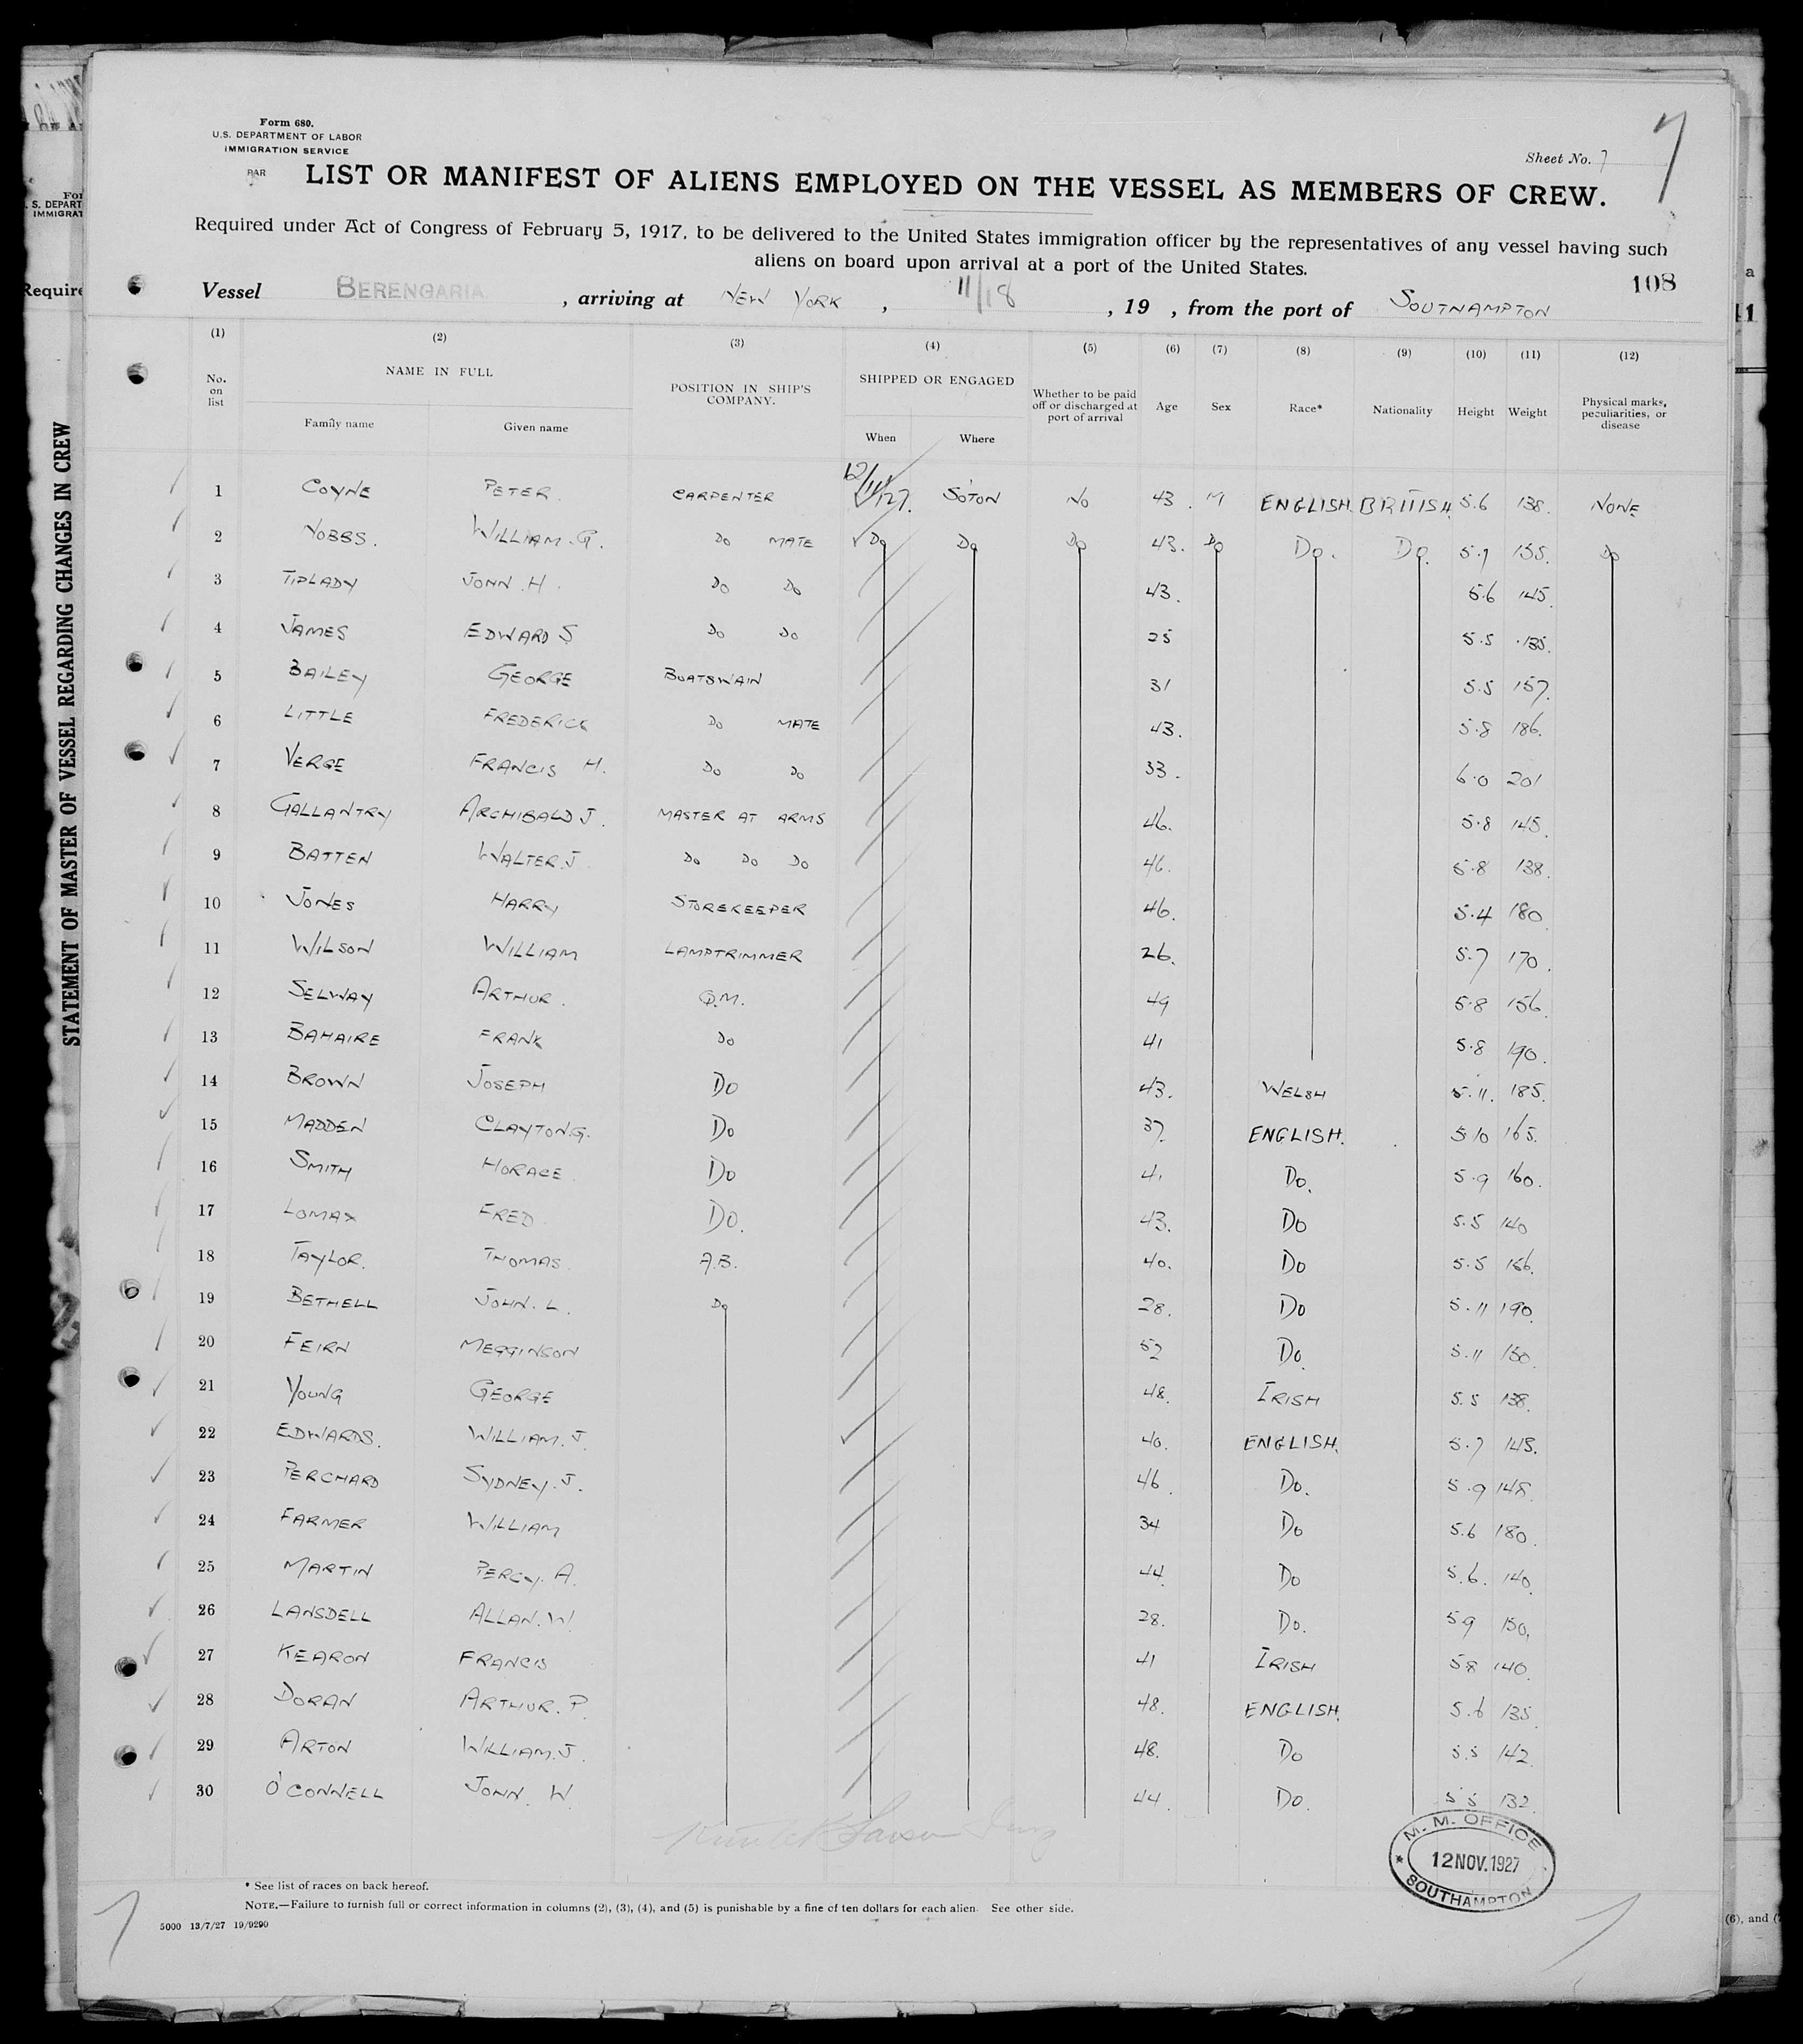 Form 680.
U.S. DEPARTMENT OF LABOR
IMMIGRATION SERVICE
PAR
Sheet No. 7
7
LIST OR MANIFEST OF ALIENS EMPLOYED ON THE VESSEL AS MEMBERS OF CREW.
Required under Act of Congress of February 5, 1917, to be delivered to the United States immigration officer by the representatives of any vessel having such
aliens on board upon arrival at a port of the United States.
108
Vessel BERENGARIA , arriving at NEW YORK , 11/18 , 19 , from the port of SOUTHAMPTON
(1) (2) (3) (4) (5) (6) (7) (8) (9) (10) (11) (12)
No. on list NAME IN FULL POSITION IN SHIP'S COMPANY. SHIPPED OR ENGAGED Whether to be paid off or discharged at port of arrival Age Sex Race* Nationality Height Weight Physical marks, peculiarities, or disease
Family name Given name When Where
1 COYNE PETER. CARPENTER 12/11/27. SOTON NO 43. M ENGLISH. BRITISH. 5.6 138. NONE
2 NOBBS. WILLIAM.G. DO MATE DO DO DO 43. DO DO. DO. 5.7 155. DO
3 TIPLADY JOHN.H. DO DO 43. 5.6 145.
4 JAMES EDWARD S DO DO 25 5.5 135.
5 BAILEY GEORGE BOATSWAIN 31 5.5 157.
6 LITTLE FREDERICK DO MATE 43. 5.8 186.
7 VERGE FRANCIS H. DO DO 33. 6.0 201
8 GALLANTRY ARCHIBALD J. MASTER AT ARMS 46. 5.8 145.
9 BATTEN WALTER.J. DO DO DO 46. 5.8 138.
10 JONES HARRY STOREKEEPER 46. 5.4 180
11 WILSON WILLIAM LAMPTRIMMER 26. 5.7 170.
12 SELWAY ARTHUR. Q.M. 49 5.8 156.
13 BAHAIRE FRANK DO 41 5.8 190.
14 BROWN JOSEPH DO 43. WELSH 5.11. 185.
15 MADDEN CLAYTON.G. DO 37. ENGLISH. 5 10 165.
16 SMITH HORACE DO 41 DO. 5.9 160.
17 LOMAX FRED DO. 43. DO 5.5 140
18 TAYLOR. THOMAS. A.B. 40. DO 5.5 156.
19 BETHELL JOHN.L. DO 28. DO 5.11 190.
20 FEIRN MEGGINSON 52 DO. 5.11 150.
21 YOUNG GEORGE 48. IRISH 5.5 138.
22 EDWARDS. WILLIAM.J. 40. ENGLISH. 5.7 145.
23 PERCHARD SYDNEY.J. 46. DO. 5.9 148.
24 FARMER WILLIAM 34 DO 5.6 180.
25 MARTIN PERCY.A. 44. DO 5.6. 140.
26 LANSDELL ALLAN.W. 28. DO. 5 9 150.
27 KEARON FRANCIS 41 IRISH 5 8 140.
28 DORAN ARTHUR.P. 48. ENGLISH. 5.6 135.
29 ARTON WILLIAM.J. 48. DO 5.5 142.
30 O'CONNELL JOHN. W. 44. DO. 5 5 132.
M. M. OFFICE
12 NOV. 1927
SOUTHAMPTON
* See list of races on back hereof.
NOTE.—Failure to furnish full or correct information in columns (2), (3), (4), and (5) is punishable by a fine of ten dollars for each alien. See other side.
5000 13/7/27 19/9290
STATEMENT OF MASTER OF VESSEL REGARDING CHANGES IN CREW
Require
(6), and (7